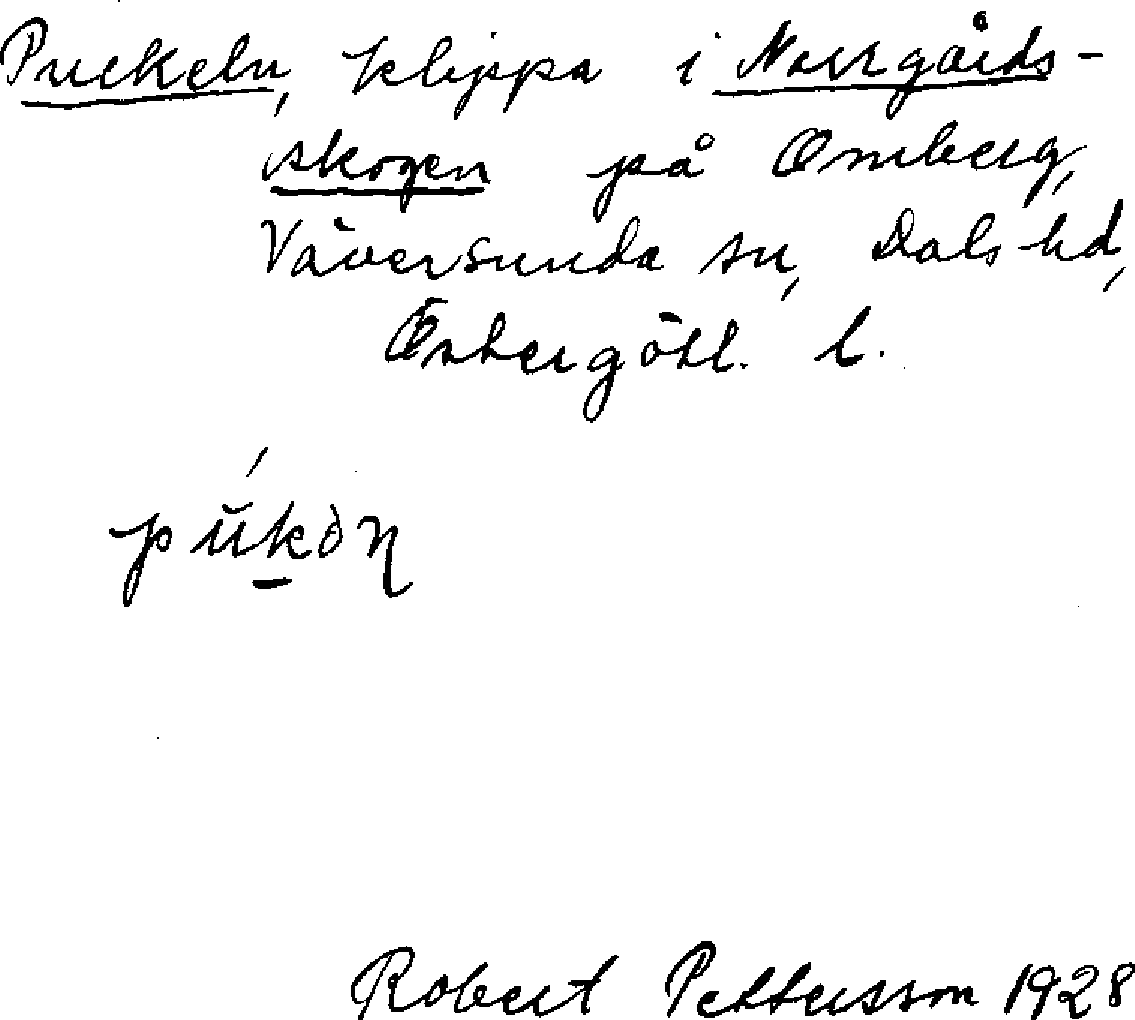 Puckeln, klippa i Norrgårds-
skogen på Omberg,
Väversunda sn, Dals hd,
Östergötl. l.
Robert Pettersson 1928